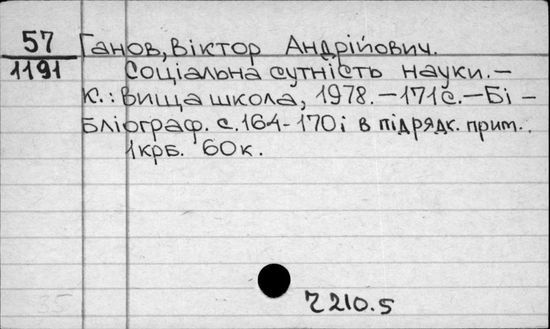 57 Ганов, Віктор Андрійович.
1191 Соціальна сутність науки.—
К.: Вища школа, 1978.—171с.—Бі-
бліограф. с.164-170 і в підрядк. прим.
1крб. 60к.
35
Ч 210.5